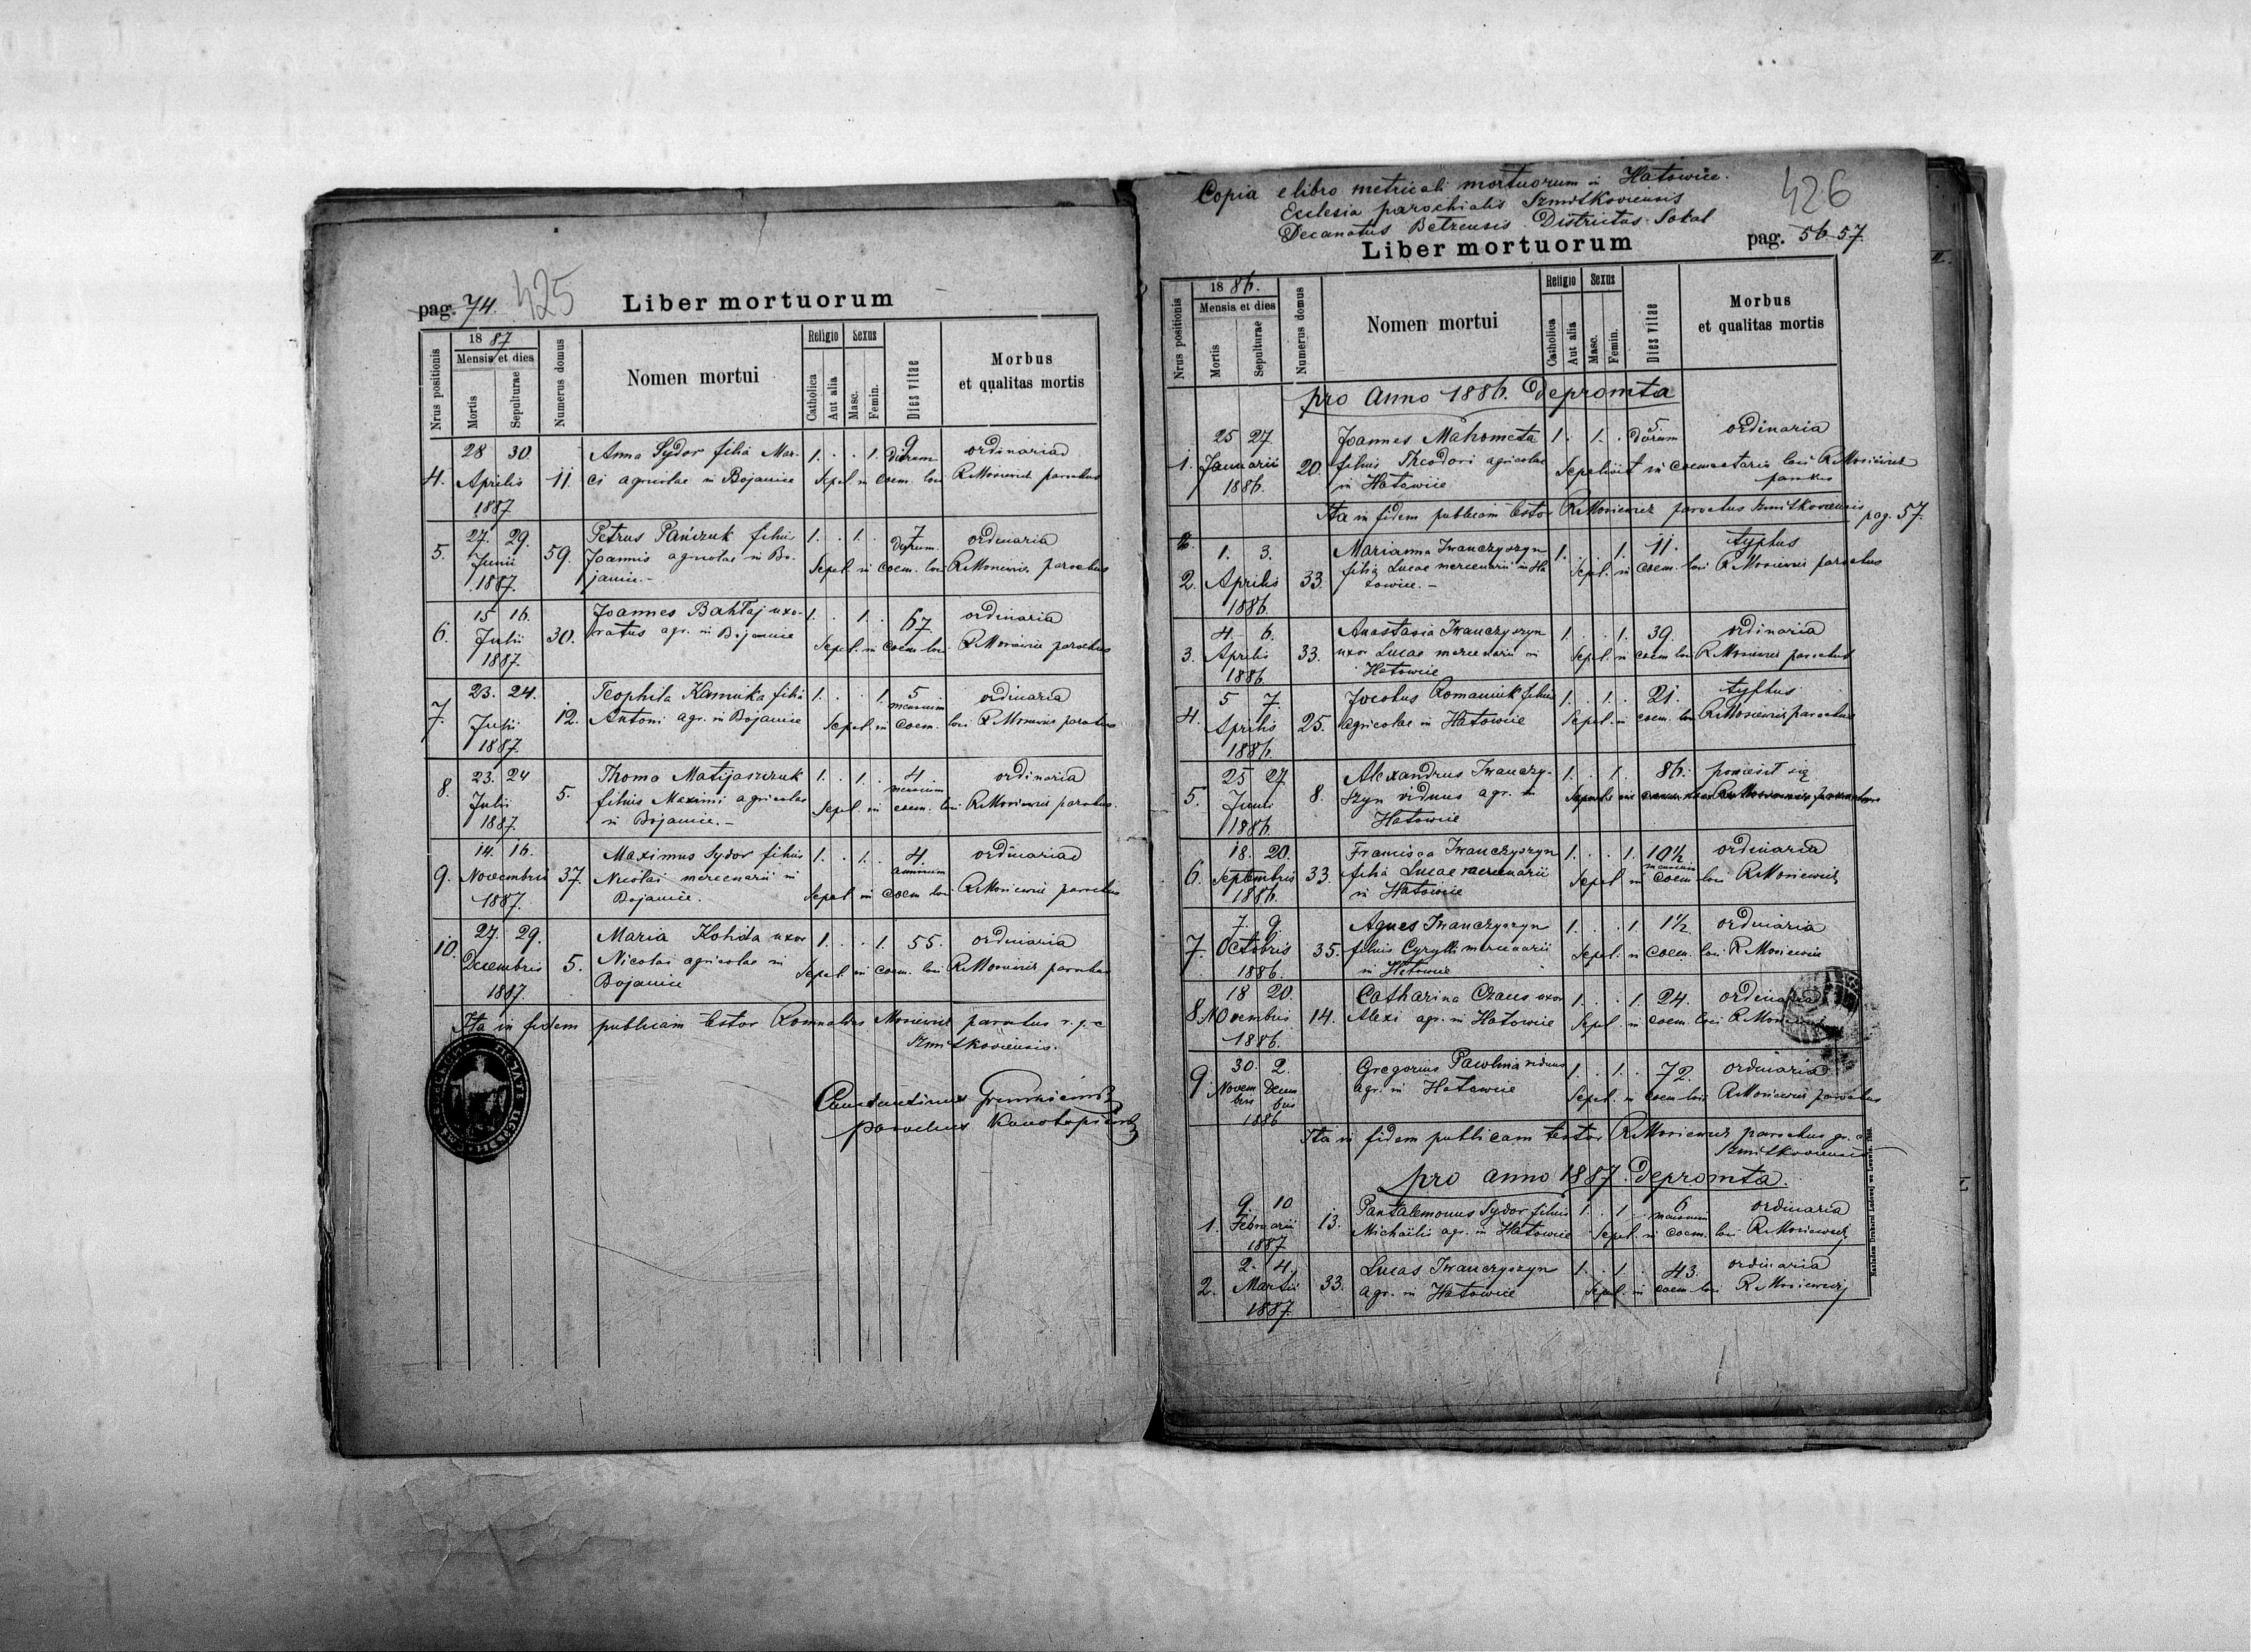 pag. 74. 425
Liber mortuorum
Nrus positionis
1887
Mensis et dies
Mortis
Sepulturae
Numerus domus
Nomen mortui
Religio
Catholica
Aut alia
Sexus
Masc.
Femin.
Dies vitae
Morbus
et qualitas mortis
28 30. Anna Sydor filia Mar- 1. . . 1. 9 dierum ordinaria
4. Aprilis 11. ci agricolae in Bojanice Sepel. in coem. loci R Mosiewicz parochus
1887
27. 29. Petrus Pańczuk filius 1. . 1. 7 dierum. ordinaria
5. Junii 59. Joannis agricolae in Bo- Sepel. in coem. loci R Mosiewicz parochus
1887. janice.-
15 16. Joannes Bahłaj uxo- 1. . 1. . 67 ordinaria
6. Julii 30. ratus agr. in Bojanice Sepel. in coem loci R Mosiewicz parochus
1887.
23. 24. Teophila Kamuka filia 1. . . 1. 5 mensium ordinaria
7. Julii 12. Antoni agr. in Bojanice Sepel. in coem. loci R Mosiewicz parochus
1887.
23. 24 Thoma Matijaszczuk 1. . 1. . 4. mensium ordinaria
8. Julii 5. filius Maximi agricolae Sepel. in coem. loci R Mosiewicz parochus.
1887. in Bojanice.-
14. 16. Maximus Sydor filius 1. . 1. . 4. annorum ordinaria
9. Novembris 37. Nicolai mercenarii in Sepel in coem loci R Mosiewicz parochus
1887. Bojanice.
27. 29. Maria Kohita uxor 1. . . 1. 55. ordinaria
10. Decembris 5. Nicolai agricolae in Sepel. in coem. loci R Mosiewicz parochus
1887. Bojanice
Ita in fidem publicam testor Romualdus Mosiewicz parochus r. g. c
Szmitkoviensis.
parochus
Copia e libro metricali mortuorum in Hatowice.
Ecclesia parochialis Szmitkoviensis
Decanatus Bełzensis Districtus Sokal
426
Liber mortuorum
pag. 56 57
Nrus positionis
1886.
Mensis et dies
Mortis
Sepulturae
Numerus domus
Nomen mortui
Religio
Catholica
Aut alia
Sexus
Masc.
Femin.
Dies vitae
Morbus
et qualitas mortis
pro Anno 1886. Depromta
25 27 Joannes Mahometa 1. 1. . 5. dierum ordinaria
1. Januarii 20. filius Theodori agricolae Sepelivit in coemeterio loci R Mosiewicz
1886. in Hatowice parochus
Ita in fidem publicam testor R Mosiewicz parochus Szmitkoviensis pag. 57.
1. 3. Marianna Iwanczyszyn 1. . . 1. 11. typhus
2. Aprilis 33. filia Lucae mercenarii in Ha Sepel. in coem. loci R Mosiewicz parochus
1886. towice.-
4. 6. Anastasia Iwanczyszyn 1. . . 1. 39. ordinaria
3. Aprilis 33. uxor Lucae mercenarii in Sepel. in coem loci R Mosiewicz parochus
1886 Hatowice
5 7. Jacobus Romaniuk filius 1. . 1. . 21. typhus
4. Aprilis 25. agricolae in Hatowice Sepel. in coem. loci R Mosiewicz parochus
1886.
25 27 Alexandrus Iwanczy- 1. . 1. 86. powiesił się
5. 8. szyn viduus agr. in
1886. Hatowice
18. 20. Francisca Iwanczyszyn 1. . . 1. 10½ mensium ordinaria
6. Septembris 33. filia Lucae mercenarii Sepel in coem loci R Mosiewicz
1886. in Hatowice
7. 9. Agnes Iwanczyszyn 1. . . 1. 1½. ordinaria
7. Octobris 35. filius Cyrylli mercenarii Sepel. in coem. loci R Mosiewicz
1886. in Hatowice
18 20. Catharina Czaus uxor 1. . . 1. 24. ordinaria
8. Novembris 14. Alexi agr. in Hatowice Sepel. in coem. loci R Mosiewicz
1886.
30. 2. Gregorius Pawlina viduus 1. . 1. . 72. ordinaria
9. Novem Decem agr. in Hatowice Sepel. in coem loci R Mosiewicz parochus
bris bris
1886
Ita in fidem publicam testor R Mosiewicz parochus gr. c
Szmitkoviensis
pro anno 1887. Depromta.
9. 10 Pantalemonus Sydor filius 1. . 1. . 6 mensium ordinaria
1. Februarii 13. Michaëlis agr. in Hatowice Sepel. in coem. loci R Mosiewicz
1887
2. 4. Lucas Iwanczyszyn 1. . 1. . 43. ordinaria
2. Martii 33. agr. in Hatowice Sepel. in coem loci R Mosiewicz
1887.